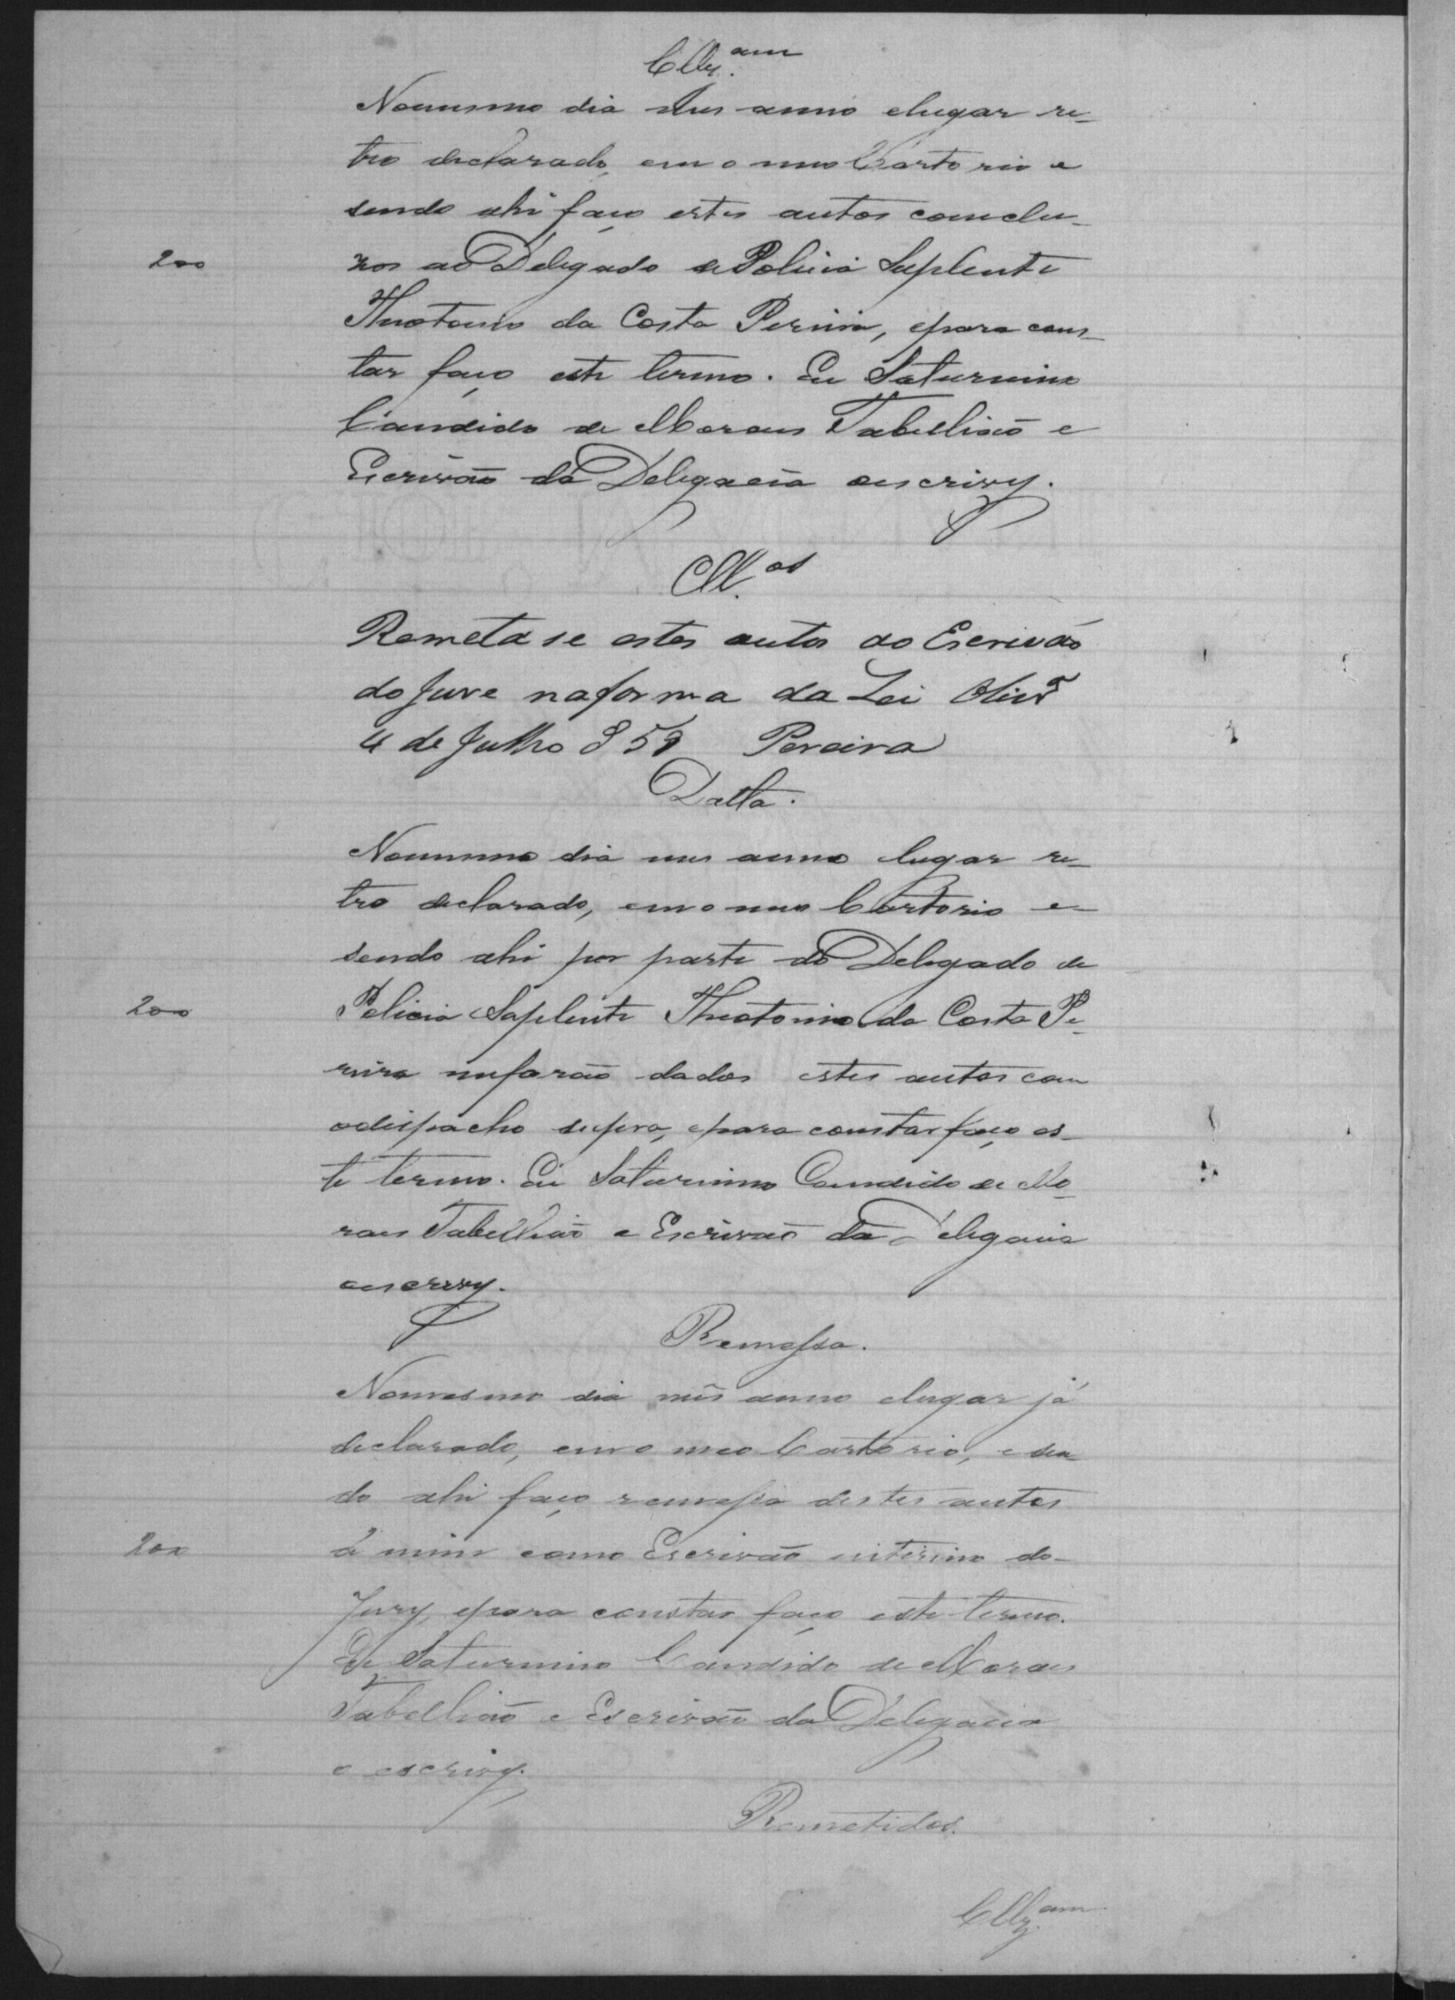 Cllz.am
Nomesmo dia mes anno elugar re-
tro declarado, em o meo Cartorio e
sendo ahi faço estes autos conclu-
200 zos ao Delegado de Policia Suplente
Theotonio da Costa Pereira, epara cons-
tar faço este termo. Eu Saturnino
Candido de Moraes Tabellião e
Escrivão da Delegacia oescrivy.
Cll.os
Remeta se estes autos ao Escrivão
do Jure naforma da Lei Olivrª
4 de Julho 859 Pereira
Datta.
Nomesmo dia mes anno lugar re-
tro declarado, em o meo Cartorio e
sendo ahi por parte do Delegado de
200 Policia Suplente Theotonio da Costa Pe-
reira meforão dados estes autos com
odespacho supra, epara constar faço es-
te termo. Eu Saturnino Candido de Mo-
raes Tabellião e Escrivão da Delegacia
oescrivy.
Remessa.
Nomesmo dia mês anno elugar já
declarado, em o meo Cartorio, e sen
do ahi faço remessa destes autos
200 á mim como Escrivão interino do
Jury, epara constar faço este termo.
Eu Saturnino Candido de Moraes
Tabellião e Escrivão da Delegacia
o escrivy.
Remetidos.
Cllz.am